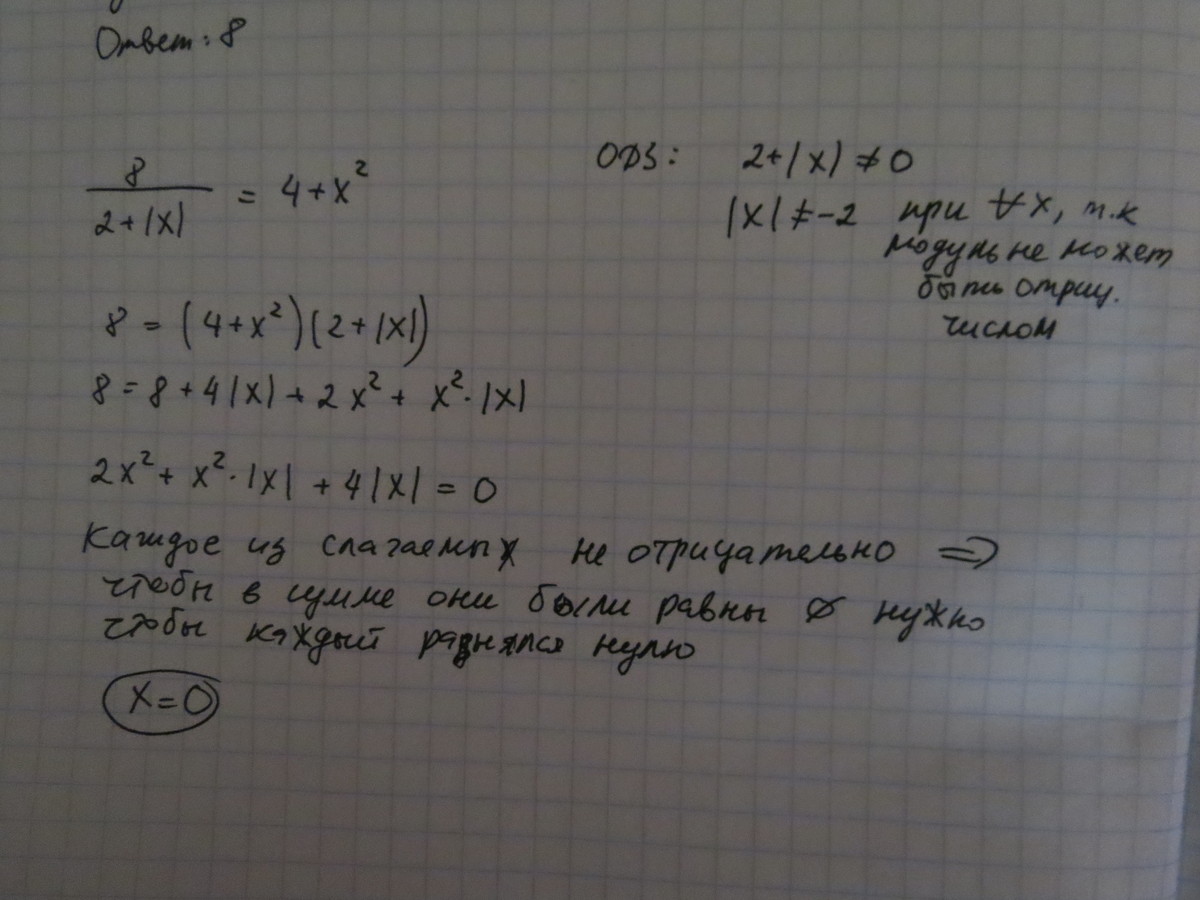 Ответ: 8
8 / (2+|x|) = 4+x²
ОДЗ: 2+|x| ≠ 0
|x| ≠ -2 при ∀x, т.к
модуль не может
быть отриц.
числом
8 = (4+x²)(2+|x|)
8 = 8 + 4|x| + 2x² + x²·|x|
2x² + x²·|x| + 4|x| = 0
Каждое из слагаемых не отрицательно ⇒
чтобы в сумме они были равны 0 нужно
чтобы каждый равнялся нулю
x=0